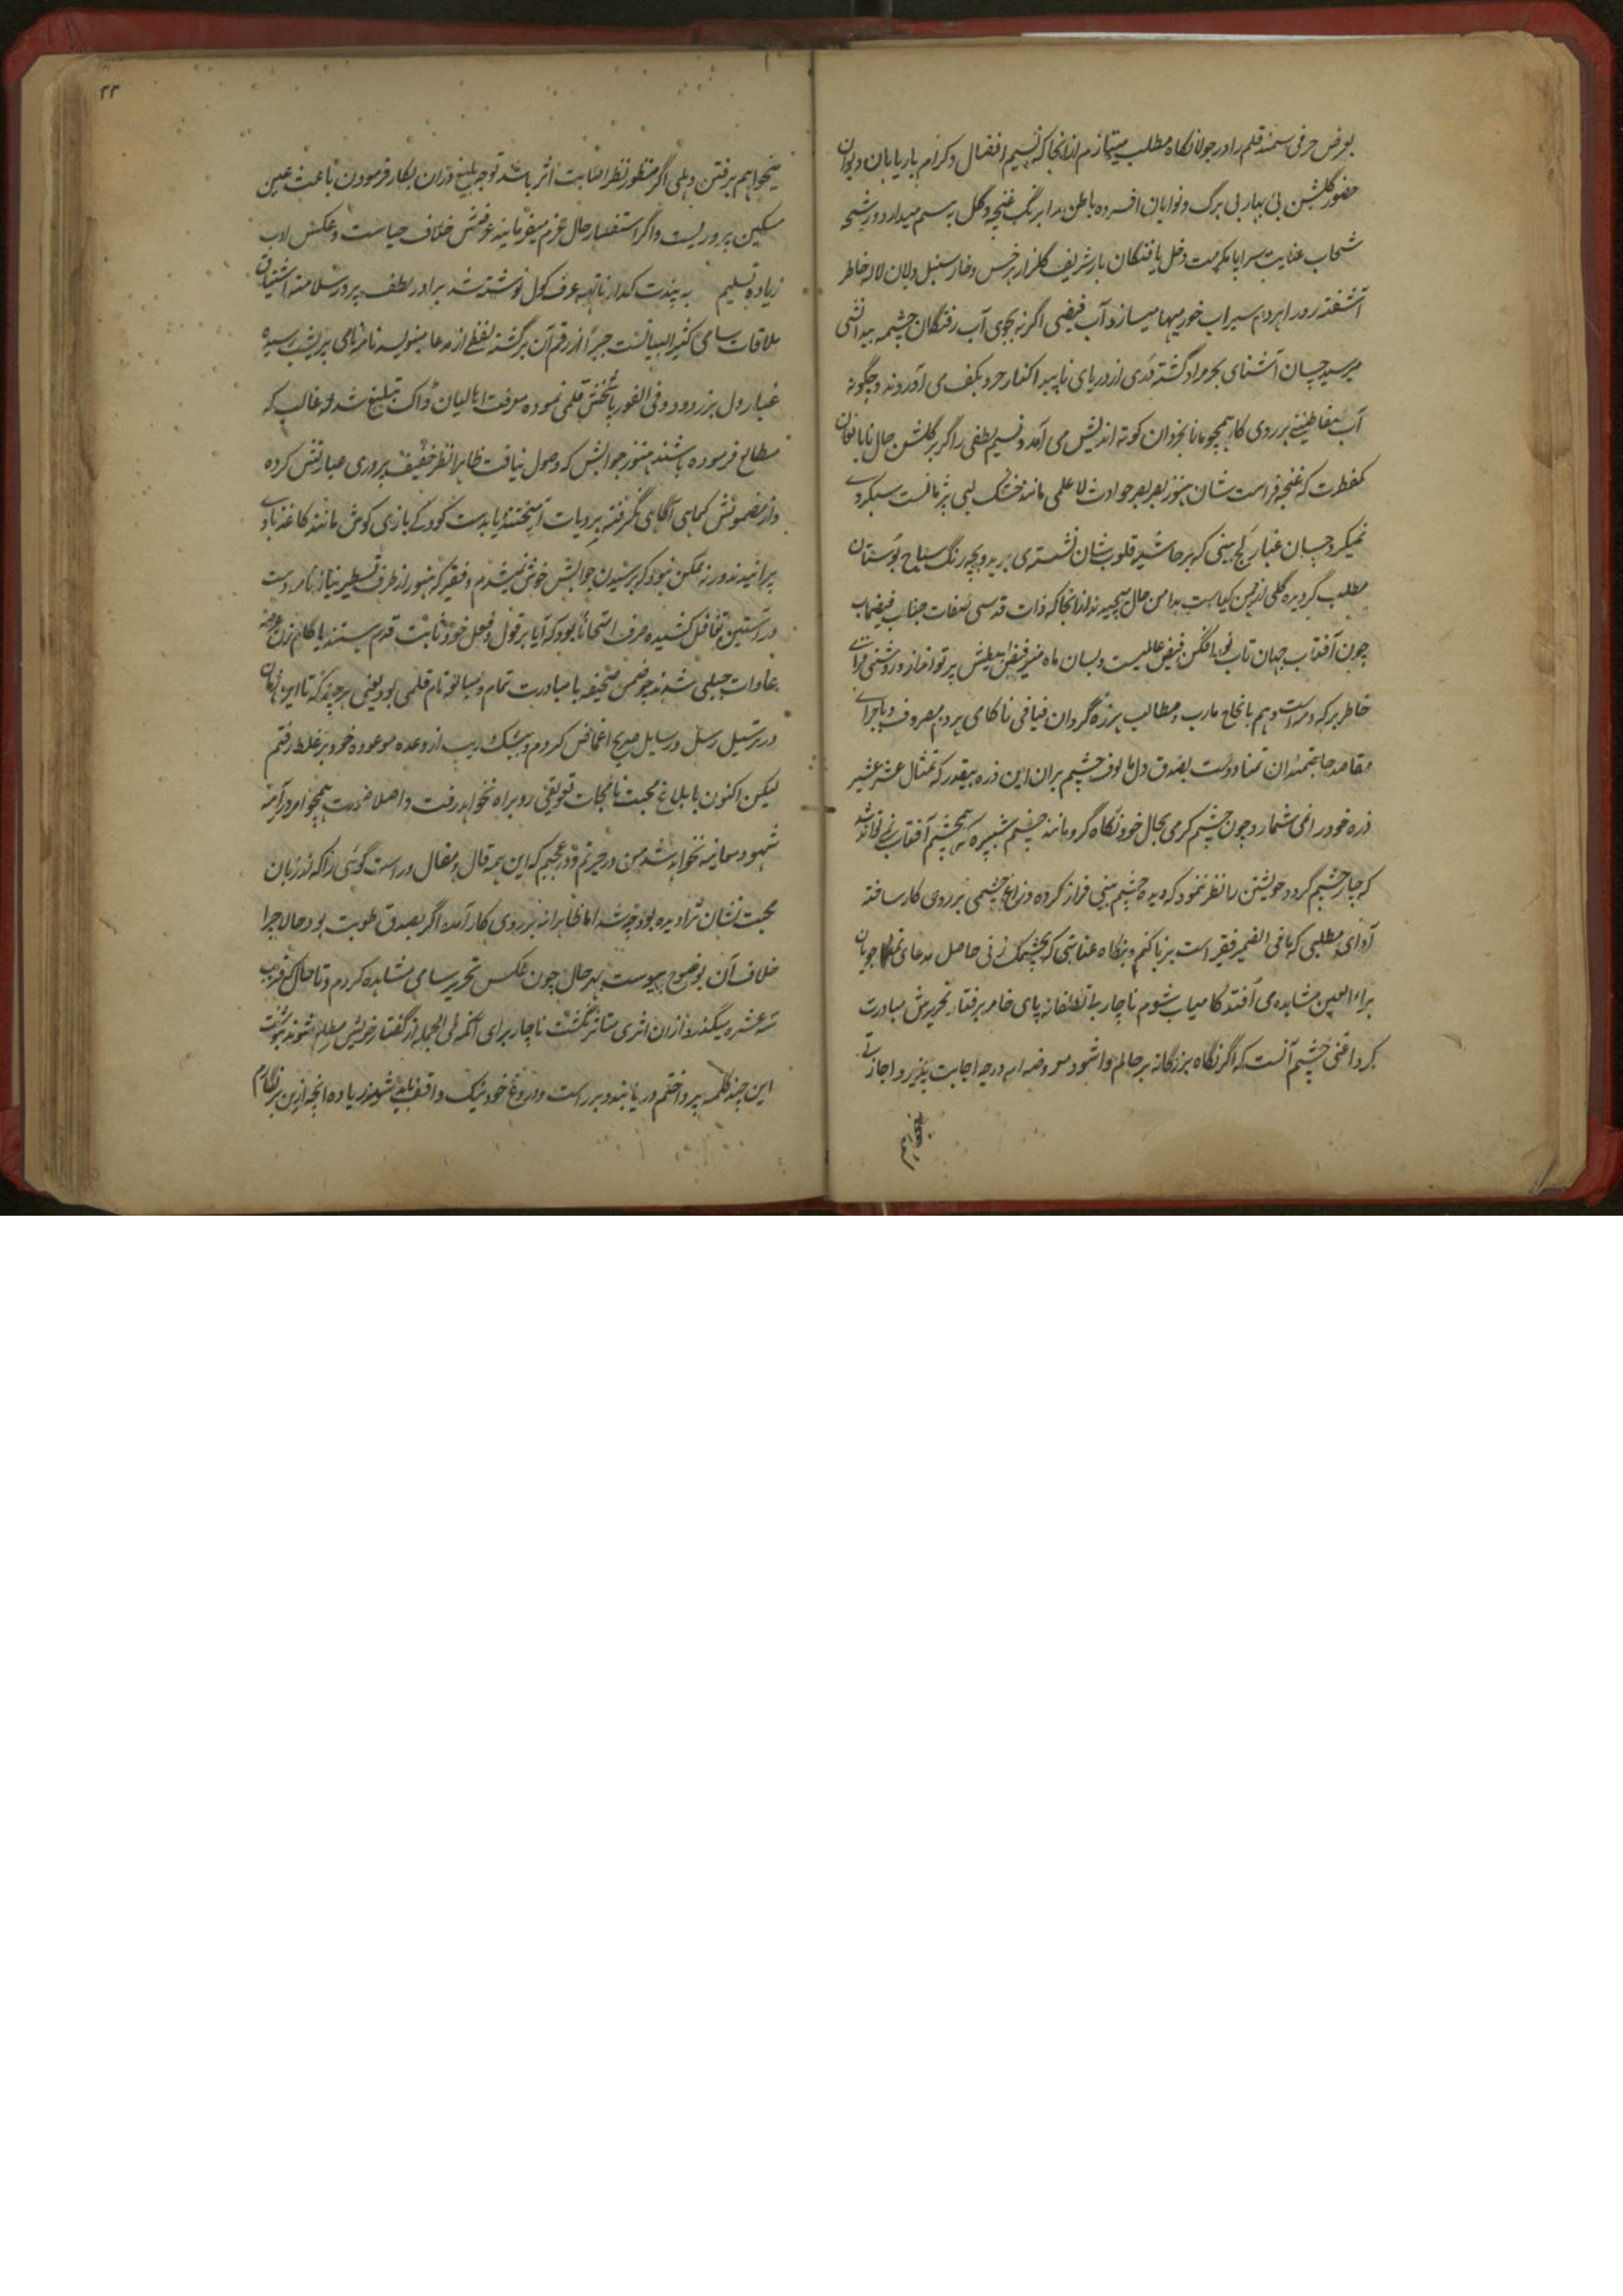 بعرض حرفی سمند قلم را در جولانگاه مطلب میتازم ازانجا که نسیم افضال و کرام باریابان دیوان
حضور گلشن بی بهار بی برگ و نوایان افسرده باطن را برنگ غنچه و گل به بسم میدارد و رشحه
سحاب عنایت سراپا مکرمت دخل یافتگان بار شریف گلزار هر خس و خار سنبل دلان لاله خاطر
آشفته رو را هر دم سیراب خورمیها میسازد آب فیضی اگر نه بجوی آب رفتگان چشمه بیدانشی
میرسید چسان آشنای بحر مراد گشته دری از دریای ناپیدا کنار خرد بکف می آوردند و چگونه
آب بر روی کار همچو ما نابخردان کوته اندیش می آمد و نسیم لطفی را گر بر گلشن حال نابالغان
کمفطرت که غنچه فراست شان هنوز بصرصر حوادث لا علمی مانند خشک لبی پژمانست
نمیکرد چسان غبار کج بینی که بر حاشیه قلوب شان نشسته می پرید و بچه رنگ سیاح بوستان
مطلب گردیده گلی ازین بدامن حال پیچیدند ازانجا که ذات قدسی صفات جناب فیضماب
چون آفتاب جهان تاب فیض عالمیست و بسان ماه منیر پرتو انداز و روشنی فزای
خاطر هر که و مه است و هم بانجاح مآرب و مطالب هرزه گردان فیافی ناکامی هر دم مصروف و باجرای
مقاصد حاجتمندان تمنا دوست بصدق دل مالوف چشم بران این ذره بیقدر که تمثال عشر عشیر
ذره خود را نمی شمارد چون چشم کرمی بحال خود نگاه کرد مانند چشم شپره که بچشم آفتاب نمی تواند شد
که چار چشم گردد خویشتن را نظر نمود که دیده چشم بینی فراز کرده و زاغ چشمی بر روی کار ساخته
ادای مطلبی که مافی الضمیر فقیر است بر پا کنم و بنگاه عنایتی که بچشمک زنی حاصل مدعای تمنا جویان
براء العین مشاهده می افتد کامیاب شوم ناچار پای خامه برفتار تحریرش مبادرت
کرد اعنی چشم آنست که اگر نگاه بزرگانه بر حالم وا شود معروضه ام درجه اجابت پذیرد اجازتی
میخواهم
۲۲
میخواهم برفتن دهلی اگر منظور نظر اصابت اثر باشد توجه بلیغ دران بکار فرمودن باعث عین
مسکین پروریست و اگر استفسار حال عزم میفرمایند عرضش خلاف حیاست و عکسش ادب
زیاده تسلیم به پندت کدارناتهه عرف کول نوشته شد برادر لطف پرور سلامت اشتیاق
ملاقات سامی کثیر البیانست جبراً از رقم آن برگشته لفظی از مدعا مینویسد نامه نامی پریشب رسیده
غبار دل بزدود و فی الفور پاسخش قلمی نموده معرفت اهالیان ڈاک تبلیغ شد که غالب که
مطالع فرموده باشند هنوز جوابش که وصول نیافت ظاهرا نظر خفیف پروری عبارتش کرده
و از مضمونش کماهی آگاهی نگرفته یا بدست کودکی بازی کوش مانند کاغذ بادی
پرانیدند ورنه ممکن نبود که برسیدن جوابش خوش نمیشدم و فقیر که هنوز از طرف تسطیر نیازنامه دست
در آستین تغافل کشیده صرف امتحاناً بود که آیا بر قول و فعل خود ثابت قدم هستند یا گام زن عرصه
عادات جبلی شدند چو ضمن صحیفه با مبادرت تمام و مبالغه تام قلمی بود یعنی هر چند که تا این زمان
در ترسیل رسل و رسایل صریح اغماض کردم و بیشک ریب از وعده موعوده خود بر غلط رفتم
لیکن اکنون با بلاغ محبت نامجات تعویقی رو براه نخواهد رفت و اصلا صورت همچو امور در آینه
شهود معاینه نخواهد شد من در حیرتم و در عجبم که این همه قال و مقال و راست گوئی را که از زبان
محبت نشان تراویده بود چه شد اما ظاهرا نه بر روی کار آمد اگر بصدق طویت بود حالا چرا
خلاف آن بوضوح پیوست بهر حال چون عکس تحریر سامی مشاهده کردم و تا حال که قریب
سه عشره میگذرد ازان اثری متاثر نگشت ناچار برای آنکه فی الجمله از گفتار خویش مطلع شوند بنوشت
این چند کلمه پرداختم دریابند و بر راست و دروغ خود نیک واقف شوند زیاده انچه ازین بر نگارم